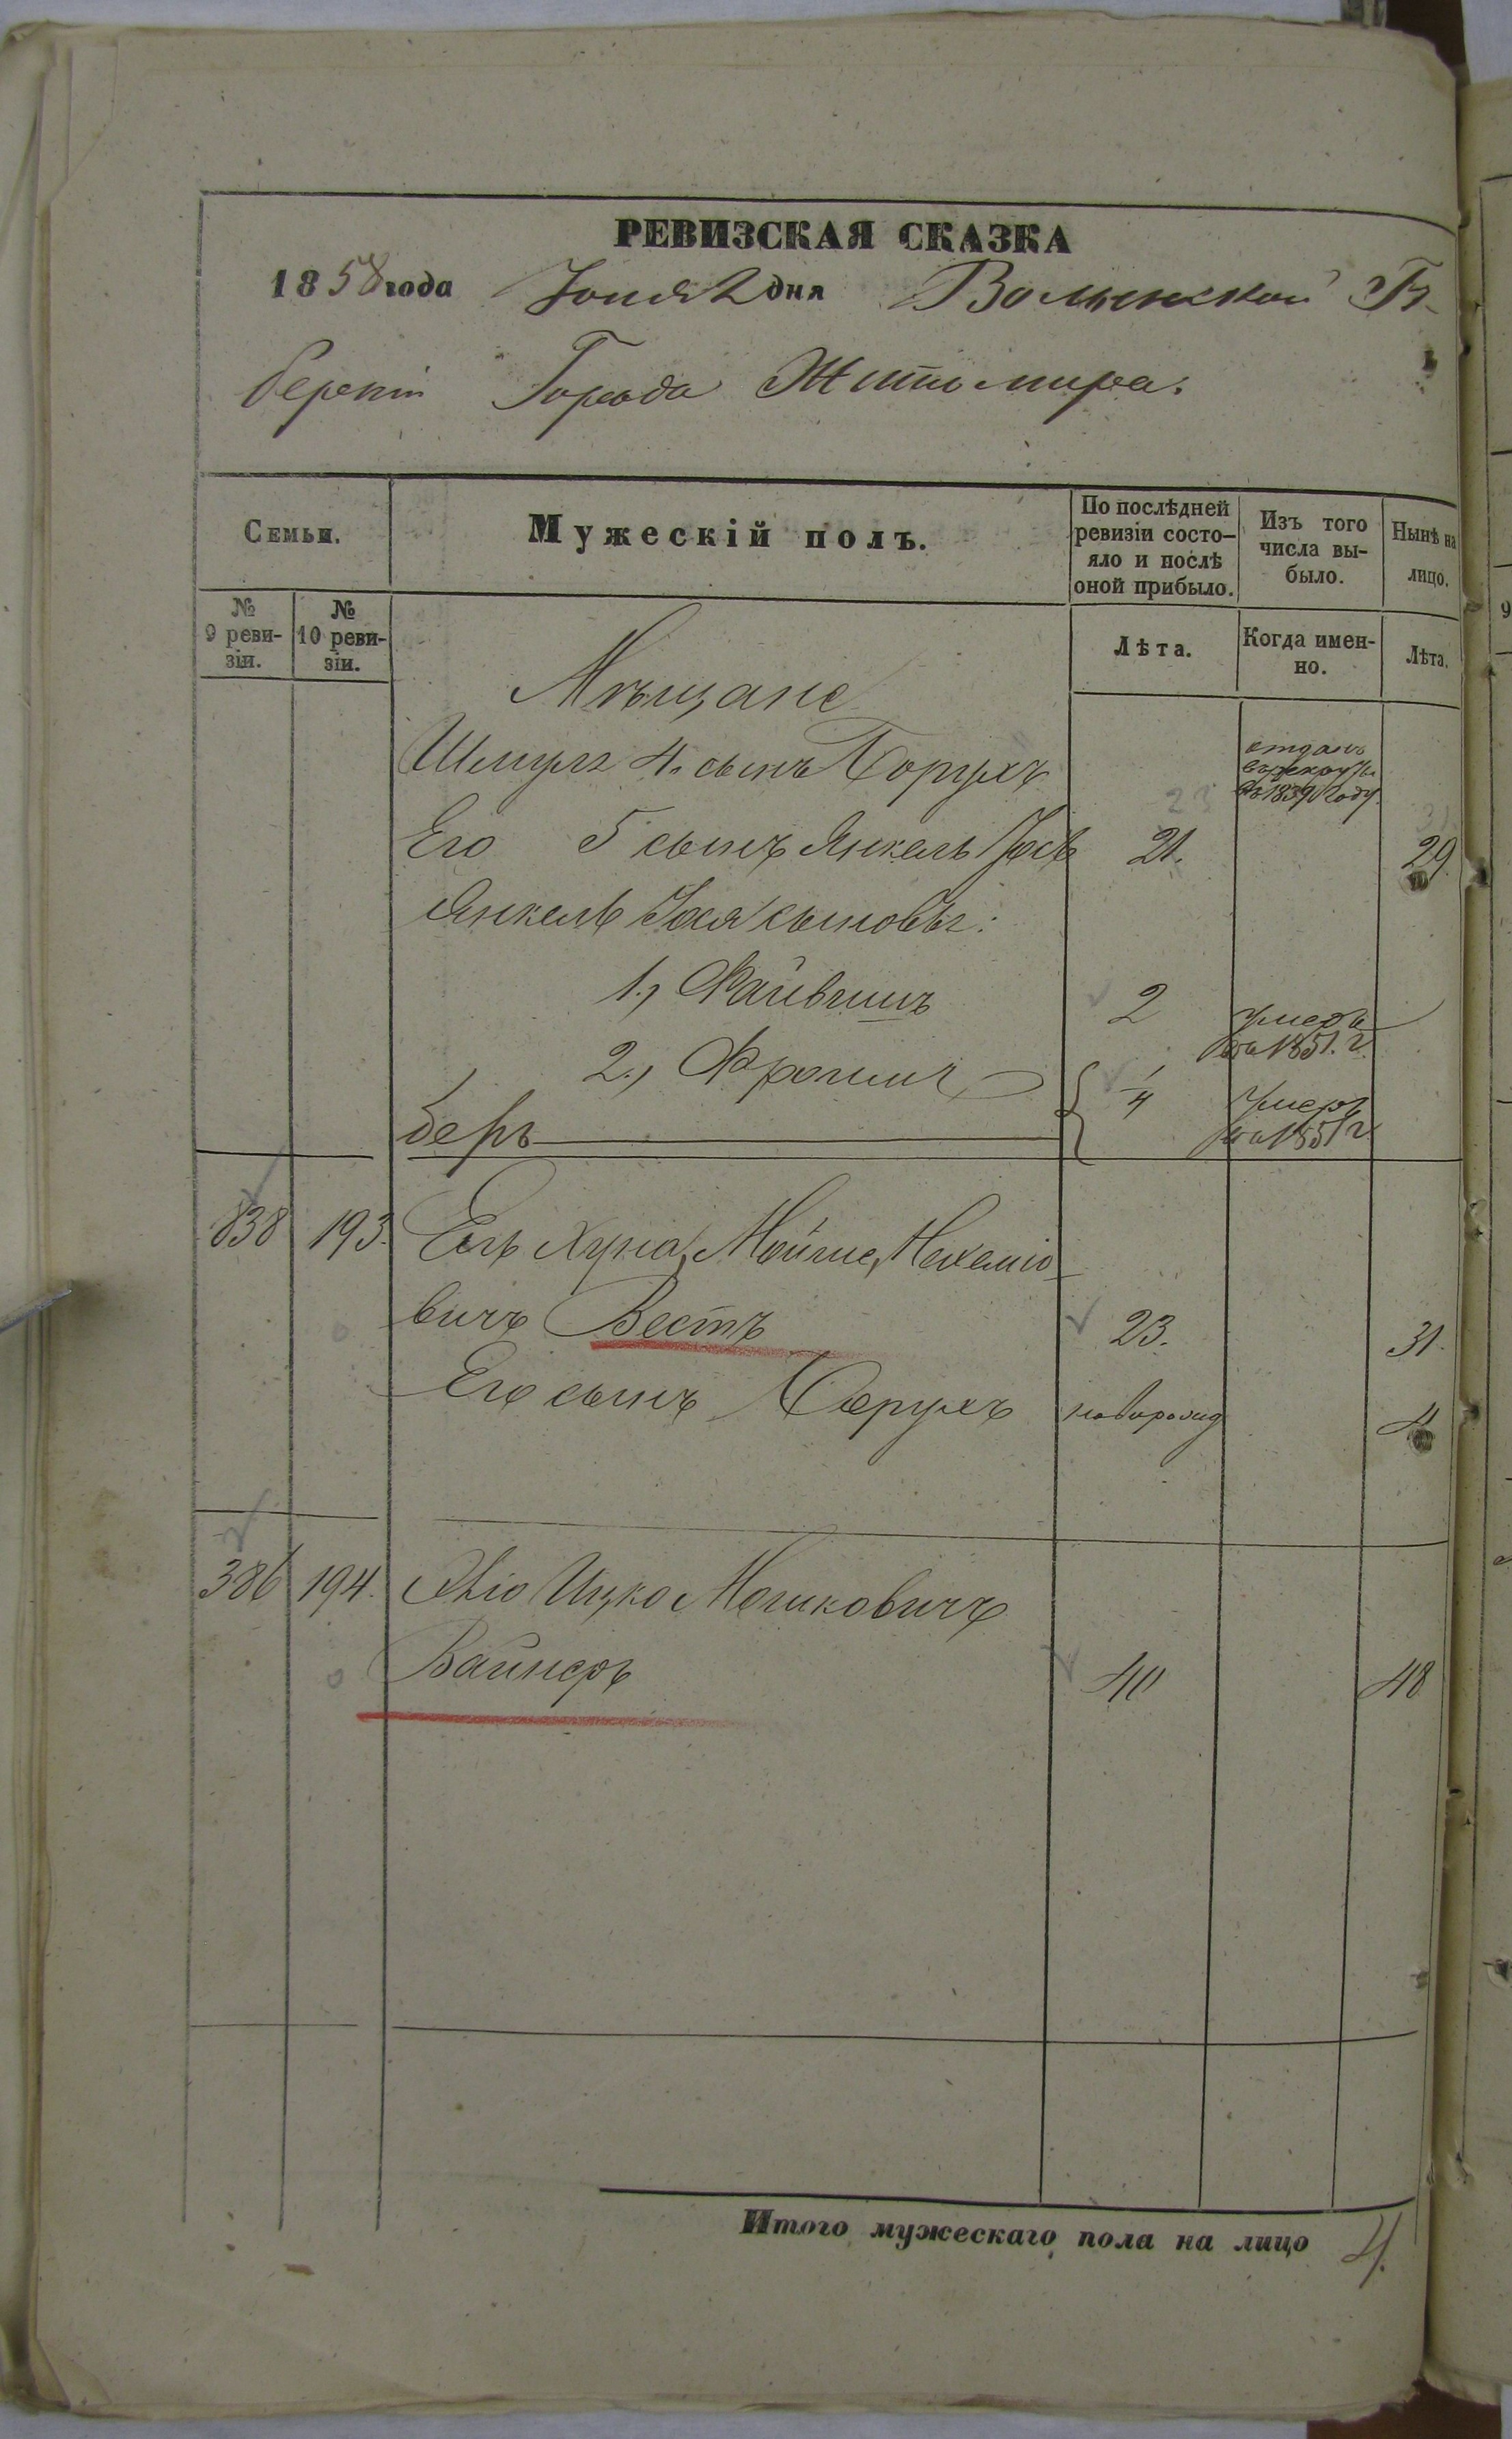 РЕВИЗСКАЯ СКАЗКА
1858 года Іюня 2 дня Волынской Гу-
берніи Города Житомира.
Семьи.
Мужескій полъ.
По послѣдней ревизіи состо-яло и послѣ оной прибыло.
Изъ того числа вы-было.
Нынѣ на лицо.
№ 9 реви-зіи.
№ 10 реви-зіи.
Лѣта.
Когда имен-но.
Лѣта.
Мѣщане
Шмуля 4. сынъ Борухъ отданъ въ рекруты въ 1839 году
Его 5 сынъ Янкель Іось 21. 29.
Янкель Іося сыновья:
1., Файвишъ 2 умеръ 1851. г.
2., Фроим
беръ 1/4 умеръ 1851 г.
838 193. Ель Хуна, Мойше, Нехеміо-
вичъ Вестъ 23. 31.
Его сынъ Борухъ новорожд 4
386 194. Ицко Мошковичъ
Вайнеръ 40 48
Итого мужескаго пола на лицо 4.